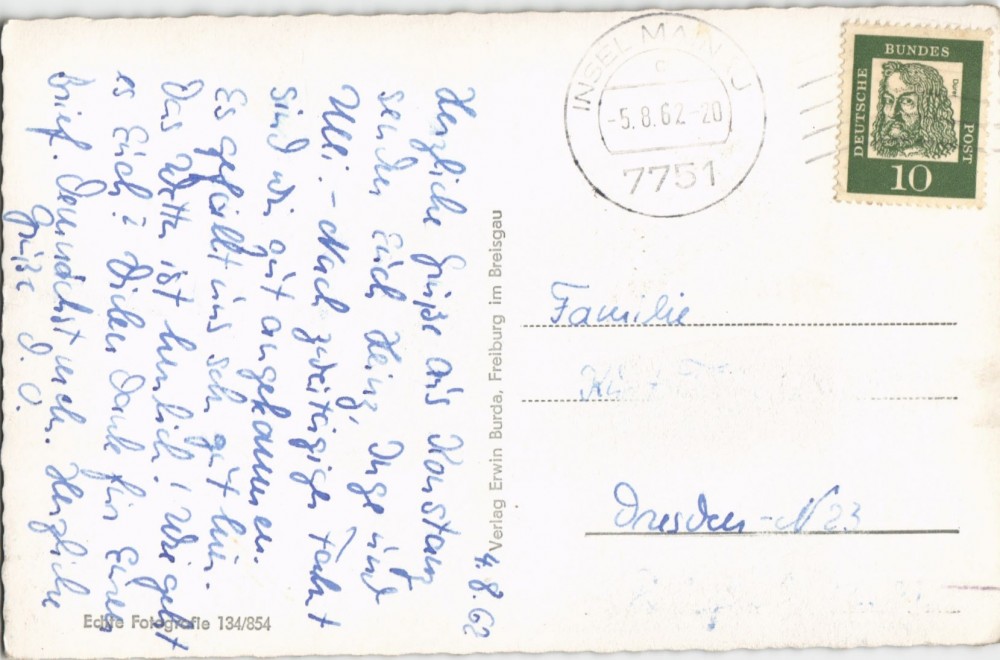 4.8.62
Herzliche Grüße aus Konstanz
senden Euch Heinz, Inge und
Ulli. - Nach zweitägiger Fahrt
sind wir gut angekommen.
Es gefällt uns sehr gut hier.
Das Wetter ist herrlich! Wie geht
es Euch? Vielen Dank für Euren
Brief. Demnächst mehr. Herzliche
Grüße D. O.
Verlag Erwin Burda, Freiburg im Breisgau
Echte Fotografie 134/854
INSEL MAINAU
-5.8.62-20
7751
DEUTSCHE
BUNDES
POST
Dürer
10
Familie
Dresden-N 23